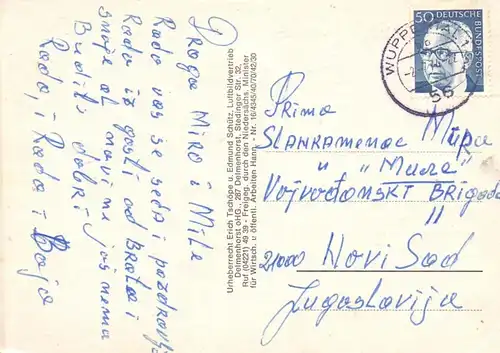 Draga Miro i Mile
Rado vas se seća i pozdravlja
Rado iz gosti od Brata i
snaje al novi ne jos nema
Budite dobri
Rada, i Rada i Baja
Urheberrecht Erich Tschöpe u. Edmund Schütz, Luftbildvertrieb
Delmenhorst oHG., 287 Delmenhorst, Stedinger Str. 32,
Ruf (04221) 49 39 - Freigeg. durch den Niedersächs. Minister
für Wirtsch. u. öffentl. Arbeiten Hann. - Nr. 16/4345/40/70/42/30
50 DEUTSCHE
BUNDESPOST
WUPPERTAL 1
56
Prima
SLANKAMENAC Mira
u "Mure"
VOJVOĐANSKI BRIGADA
11
21000 Novi Sad
Jugoslavija